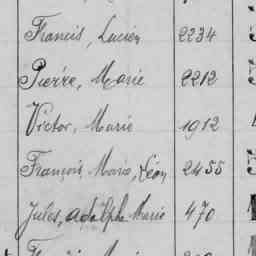 Francis, Lucien 2234
Pierre, Marie 2212
Victor, Marie 1912
François, Marie, Léon 2455
Jules, Adolphe Marie 470